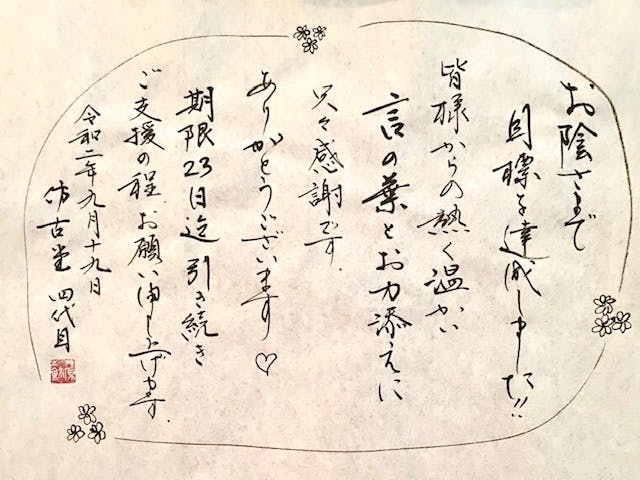 お陰さまで
目標を達成しました!!
皆様からの熱く温かい
言の葉とお力添えに
只々感謝です.
ありがとうございます♡
期限23日迄 引き続き
ご支援の程、お願い申し上げます.
令和二年九月十九日
仿古堂 四代目